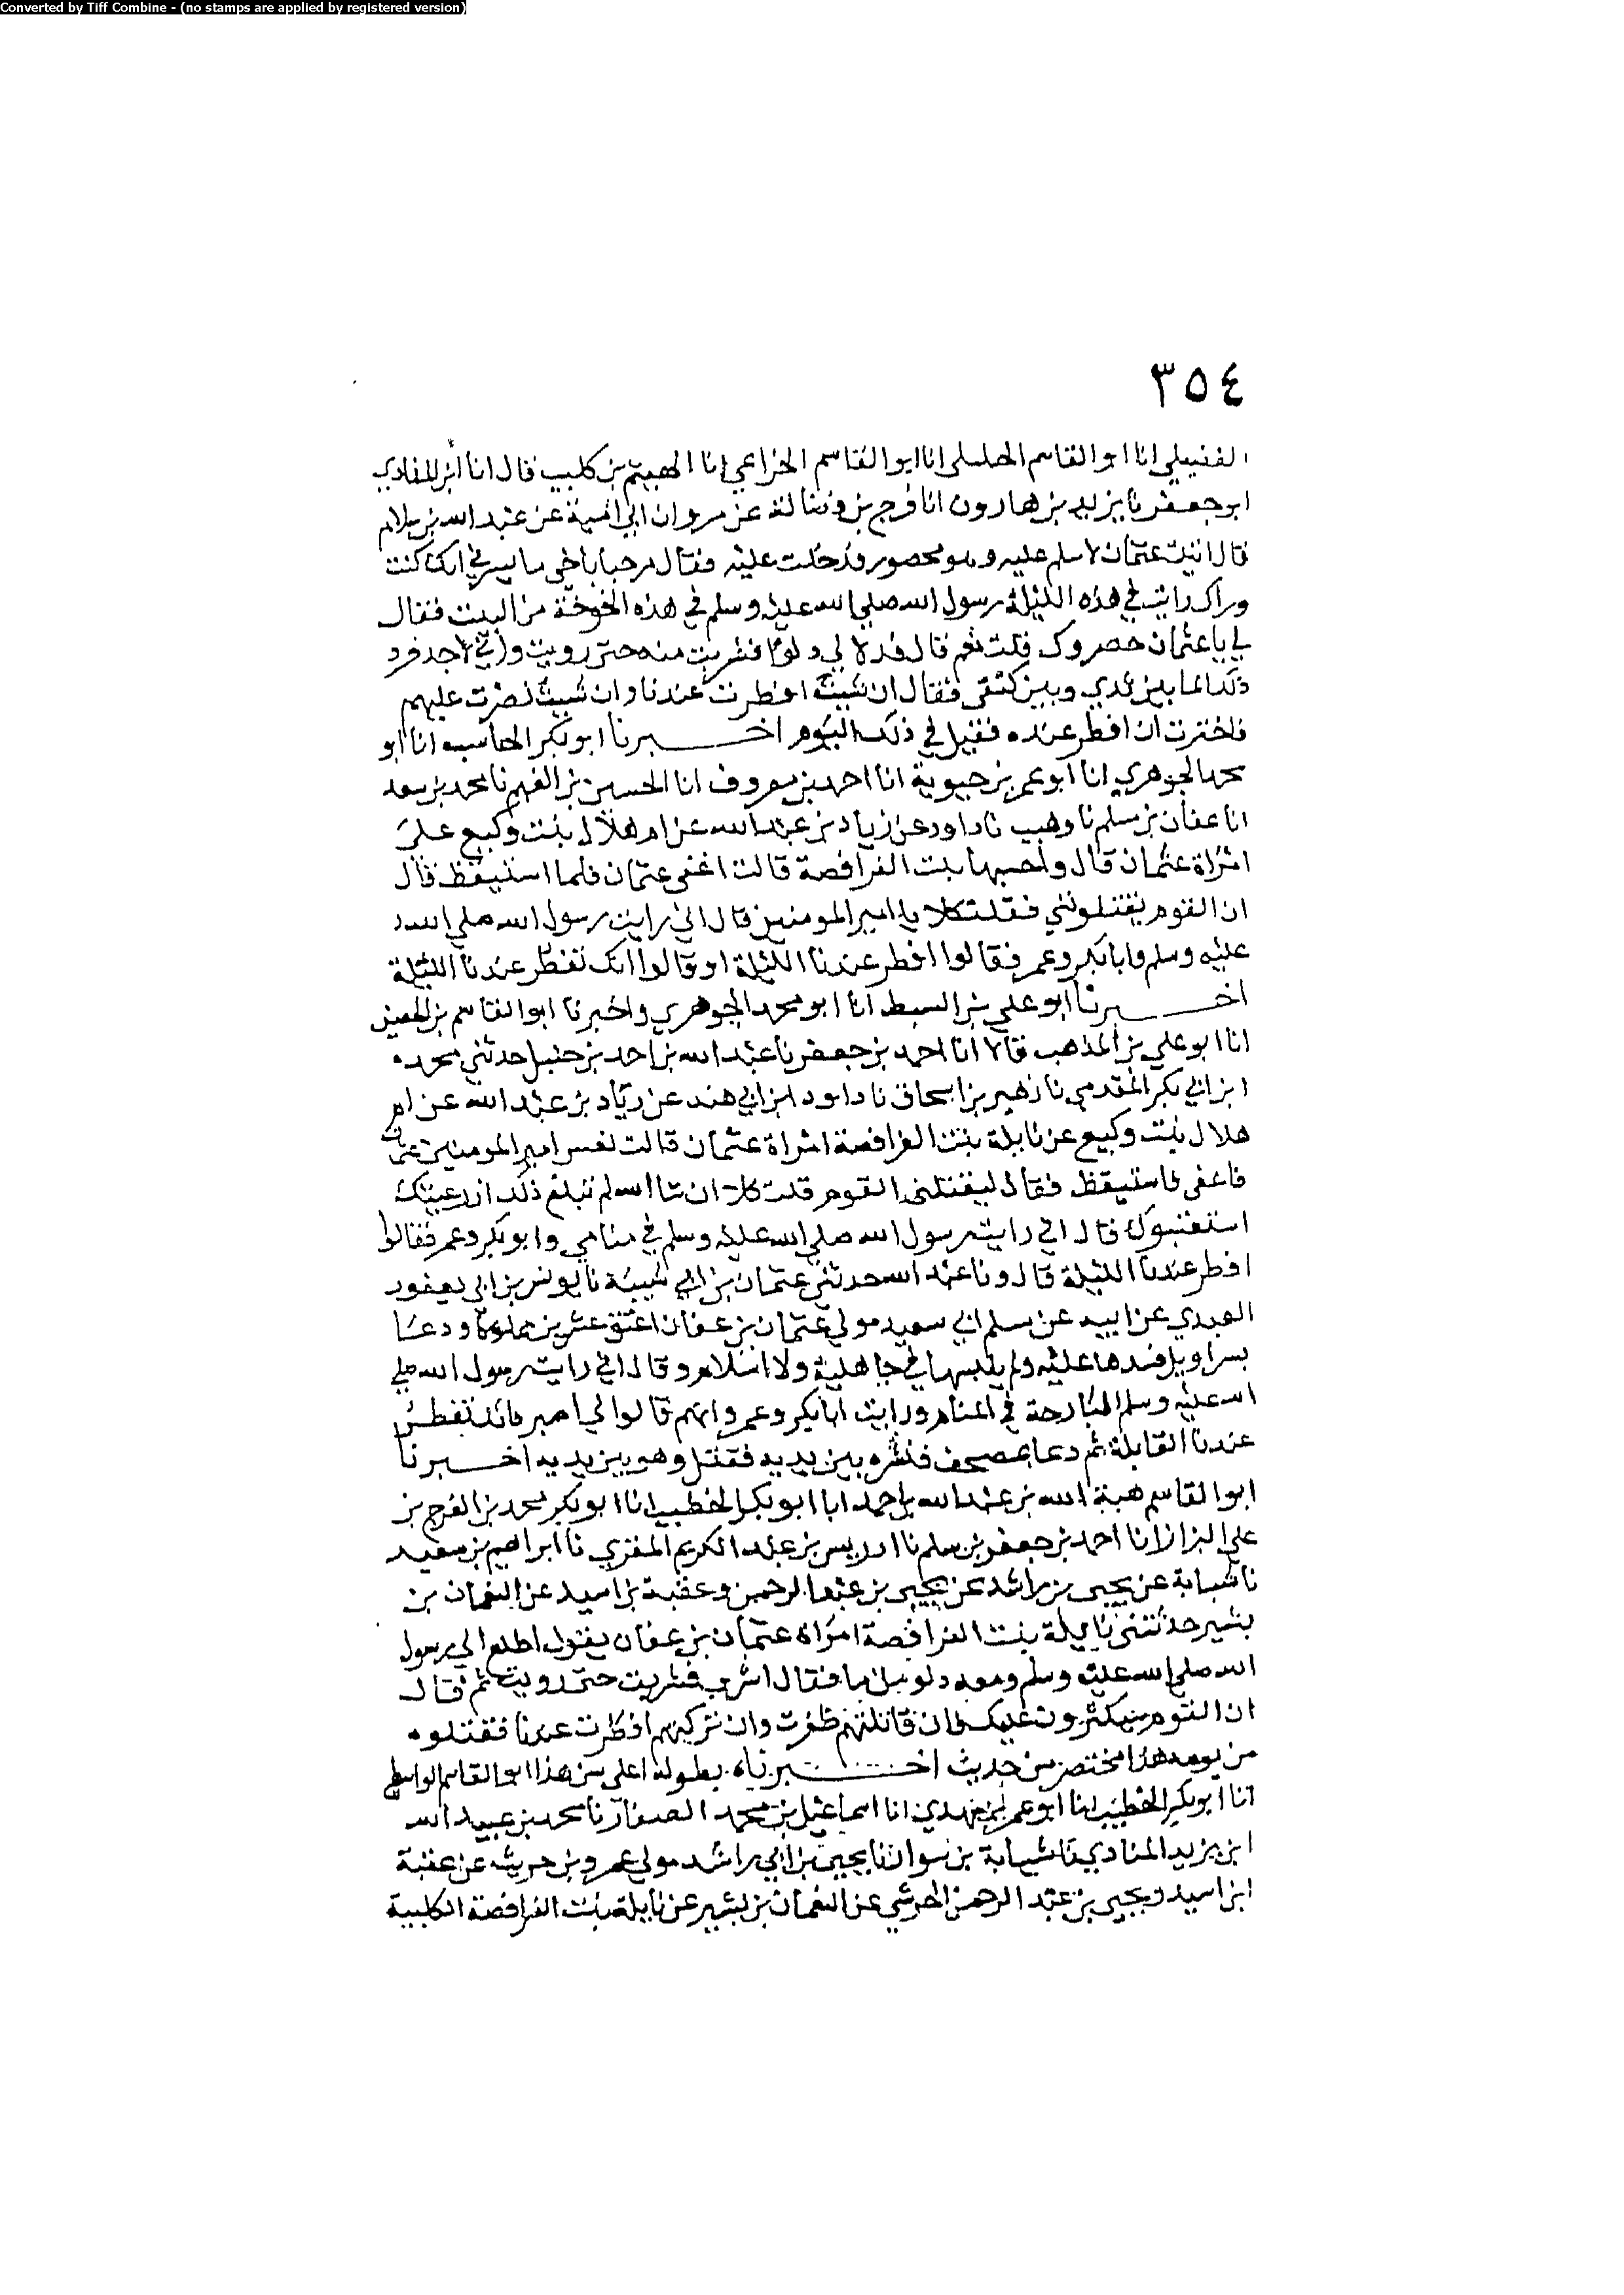 Converted by Tiff Combine - (no stamps are applied by registered version)
٣٥٤
الفضيلي انا ابو القاسم الخليلي انا ابو القاسم الخزاعي انا الهيثم بن كليب قال انا ابن المنادي
ابو جعفر نا يزيد بن هارون انا فرج بن فضالة عن مروان ابي امية عن عبد الله بن سلام
قال اتيت عثمان لاسلم عليه وهو محصور فدخلت عليه فقال مرحبا باخي ما يسرني انك كنت
وراك رايت في هذه الليلة رسول الله صلي الله عليه وسلم في هذه الخوخة من البيت فقال
لي يا عثمان حصروك قلت نعم قال فدلا لي دلوا فشربت منه حتى رويت واني لاجد برد
ذلك الما بين ثديي وبين كتفي فقال ان شيت افطرت عندنا وان شيت نصرت عليهم
فاخترت ان افطر عنده فقتل في ذلك اليوم اخبرنا ابو بكر الحاسب انا ابو
محمد الجوهري انا ابو عمر بن حيوية انا احمد بن معروف انا الحسين بن الفهم نا محمد بن سعد
انا عفان بن مسلم نا وهيب نا داود عن زياد بن عبد الله عن ام هلال بنت وكيع عن
امراة عثمان قال واحسبها بنت الفرافصة قالت اغفى عثمان فلما استيقظ قال
ان القوم يقتلونني فقلت كلا يا امير المومنين قال اني رايت رسول الله صلي الله
عليه وسلم وابا بكر وعمر فقالوا افطر عندنا الليلة او قالوا انك تفطر عندنا الليلة
اخبرنا ابو علي بن السبط انا ابو محمد الجوهري واخبرنا ابو القاسم بن الحصين
انا ابو علي بن المذهب قالا انا احمد بن جعفر نا عبد الله بن احمد بن حنبل حدثني محمد
ابن ابي بكر المقدمي نا زهير بن اسحاق نا داود ابن ابي هند عن زياد بن عبد الله عن ام
هلال بنت وكيع عن نايلة بنت الفرافصة امراة عثمان قالت نعس امير المومنين عثمان
فاغفى فاستيقظ فقال ليقتلني القوم قلت كلا ان شا الله لم تبلغ ذلك ان رعيتك
استعتبوك قال اني رايت رسول الله صلي الله عليه وسلم في منامي وابو بكر وعمر فقالوا
افطر عندنا الليلة قال ونا عبد الله حدثني عثمان بن ابي شيبة نا يونس بن ابي يعفور
العبدي عن ابيه عن مسلم ابي سعيد مولي عثمان بن عفان اعتق عشرين مملوكا ودعا
بسراويل فشدها عليه ولم يلبسها في جاهلية ولا اسلام وقال اني رايت رسول الله صلي
الله عليه وسلم البارحة في المنام ورايت ابا بكر وعمر وانهم قالوا لي اصبر فانك تفطر
عندنا القابلة ثم دعا بمصحف فنشره بين يديه فقتل وهو بين يديه اخبرنا
ابو القاسم هبة الله بن عبد الله بن احمد انا ابو بكر الخطيب انا ابو بكر محمد بن الفرج بن
علي البزاز انا احمد بن جعفر بن سلم نا ادريس بن عبد الكريم المقري نا ابراهيم بن سعيد
نا شبابة عن يحيى بن راشد عن يحيى بن عبد الرحمن وعقبة بن اسيد عن النعمان بن
بشير حدثتني نايلة بنت الفرافصة امراة عثمان بن عفان يقول اطلع الي رسول
الله صلي الله عليه وسلم ومعه دلو من ما فقال اشرب فشربت حتى رويت ثم قال
ان القوم سيكثرون عليك فان قاتلتهم ظفرت وان تركتهم افطرت عندنا فقتلوه
من يومه هذا مختصر من حديث اخبرناه بطوله اعلى من هذا ابو القاسم الواسطي
انا ابو بكر الخطيب انا ابو عمر بن مهدي انا اسماعيل بن محمد الصفار نا محمد بن عبيد الله
ابن يزيد المنادي نا شبابة بن سوار نا يحيى بن ابي راشد مولي عمرو بن حريث عن عقبة
ابن اسيد ويحيى بن عبد الرحمن الجرشي عن النعمان بن بشير عن نايلة بنت الفرافصة الكلبية